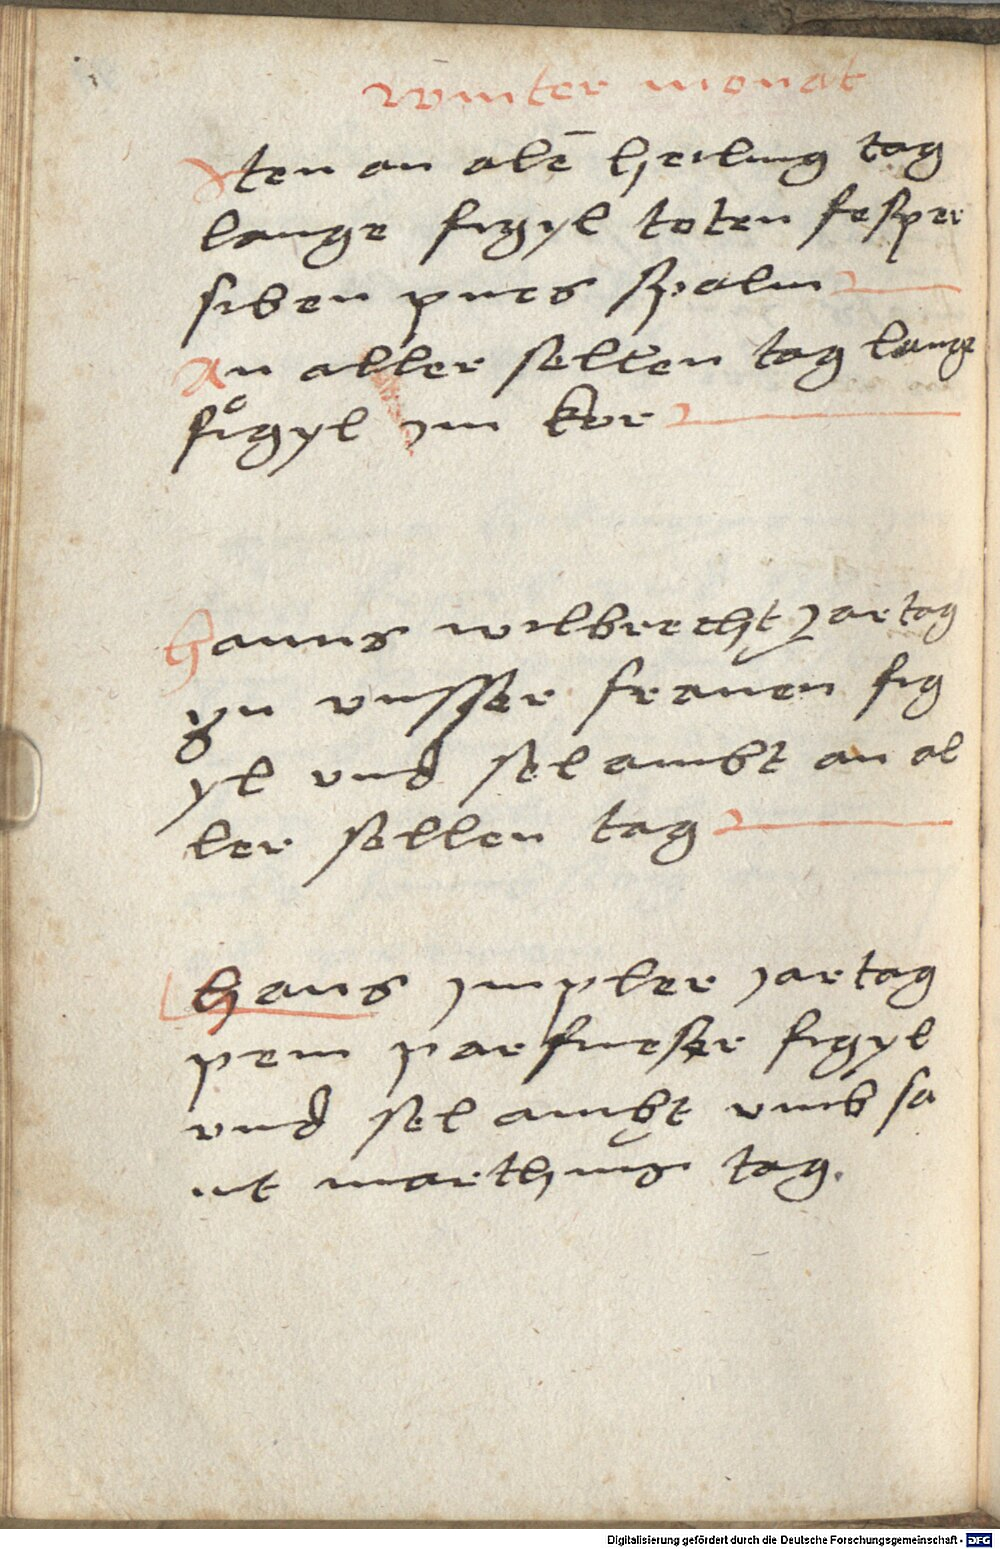 winter monat
Iten an alē heiling tag
lange figyl toten fesper
siben pues spalm
An aller sellen tag lange
figyl im kor
Hanns wilbrecht jartag
yn unsser frauen fig
yl und sel ambt an al
ler sellen tag
Hans impler jartag
pein parfuesser figyl
und sel ambt umb sa
nt marthins tag.
Digitalisierung gefördert durch die Deutsche Forschungsgemeinschaft - DFG